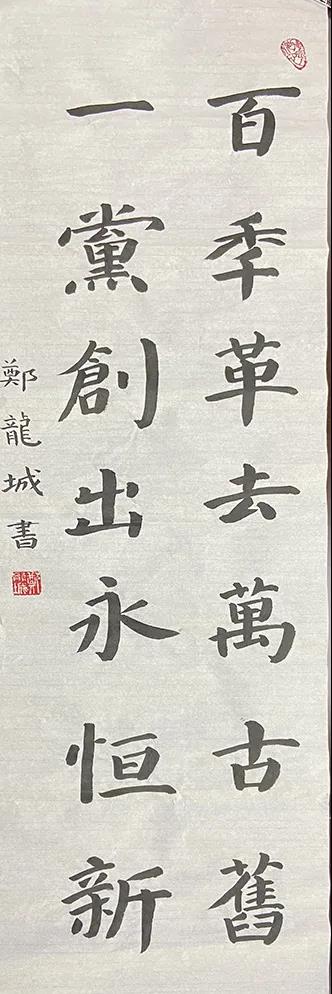 百季革去萬古舊
一黨創出永恒新
鄭龍城書